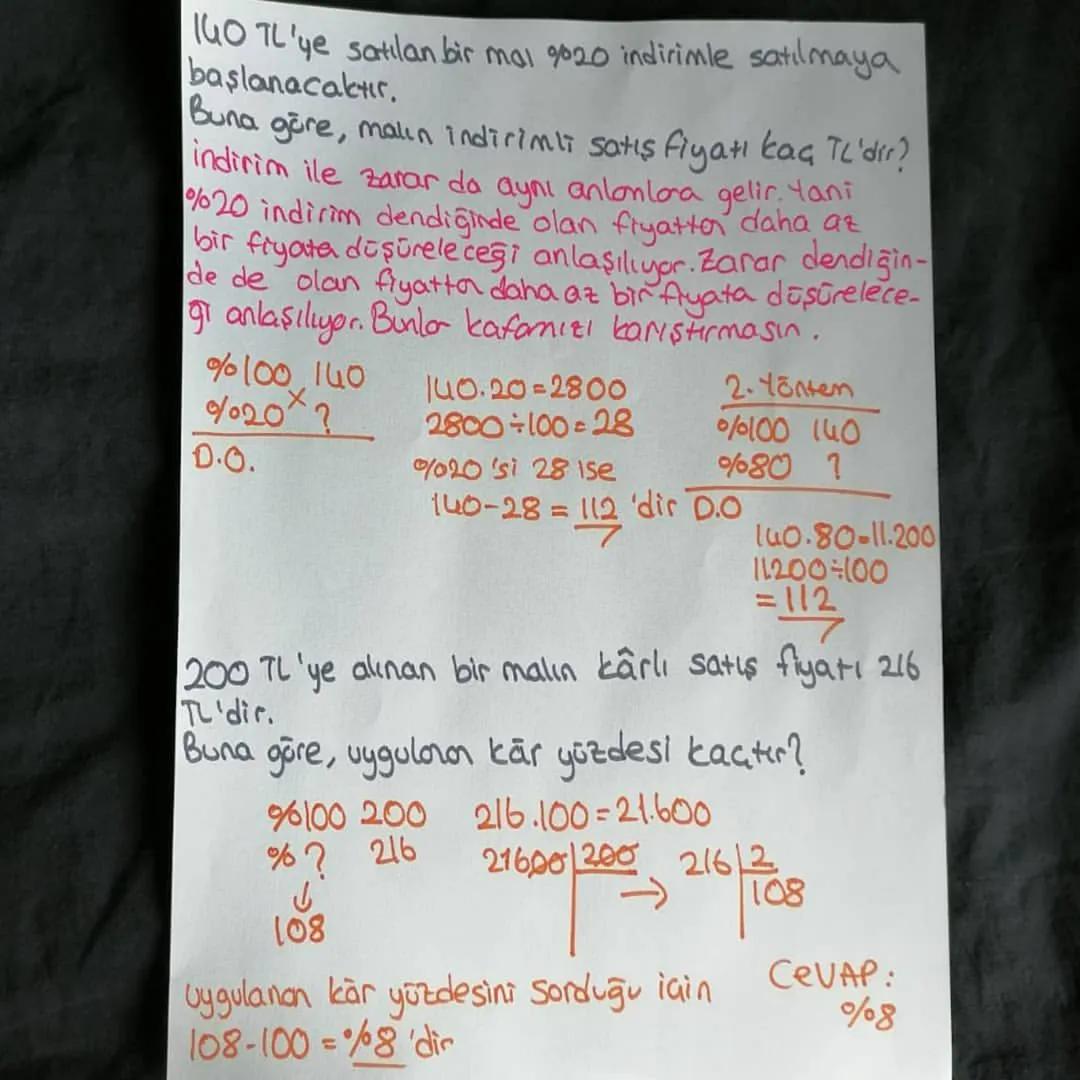 140 TL'ye satılan bir mal %20 indirimle satılmaya
başlanacaktır.
Buna göre, malın indirimli satış fiyatı kaç TL'dir?
indirim ile zarar da aynı anlamlara gelir. Yani
%20 indirim dendiğinde olan fiyattan daha az
bir fiyata düşüreleceği anlaşılıyor. Zarar dendiğin-
de de olan fiyattan daha az bir fiyata düşürelece-
ği anlaşılıyor. Bunlar kafamızı karıştırmasın.
%100 140
%20 x ?
D.O.
140.20=2800
2800÷100=28
%20'si 28 ise
140-28 = 112 'dir
2. Yöntem
%100 140
%80 ?
D.O
140.80=11.200
11200÷100
=112
200 TL'ye alınan bir malın kârlı satış fiyatı 216
TL'dir.
Buna göre, uygulanan kâr yüzdesi kaçtır?
%100 200
%? 216
↓
108
216.100=21.600
21600 | 200 → 216 | 2
108
uygulanan kâr yüzdesini sorduğu için
108-100 = %8 'dir
CEVAP:
%8